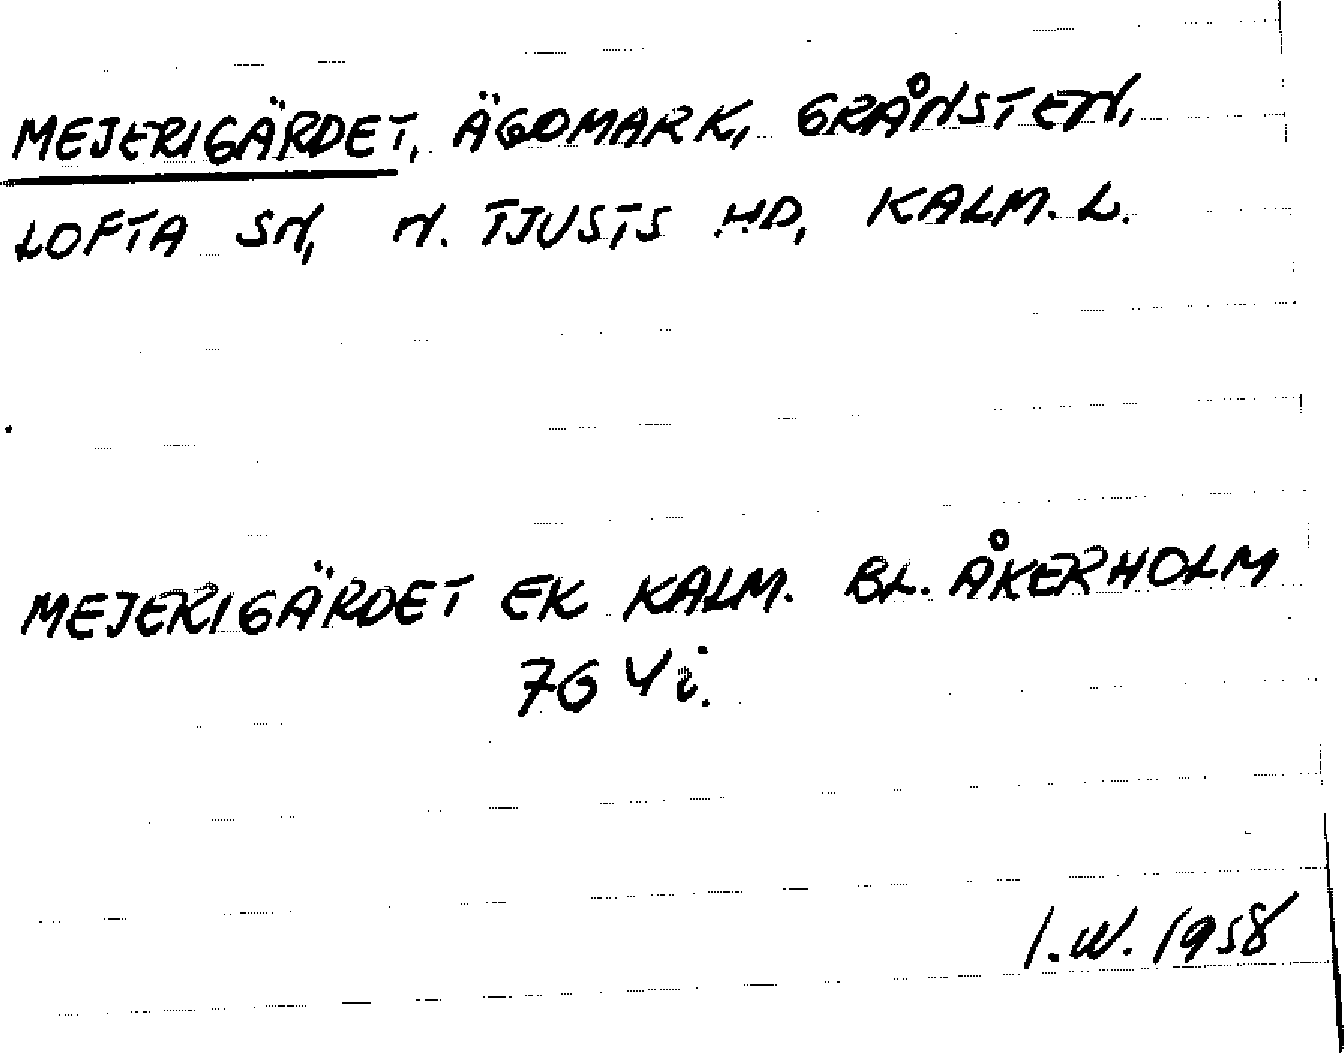 MEJERIGÄRDET, ÄGOMARK, GRÅNSTEN,
LOFTA SN, N. TJUSTS HD, KALM. L.
MEJERIGÄRDET EK KALM. BL. ÅKERHOLM
76 4 i.
I.W. 1958